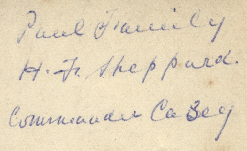 Paul Family
H. F. Sheppard.
Commander Casey